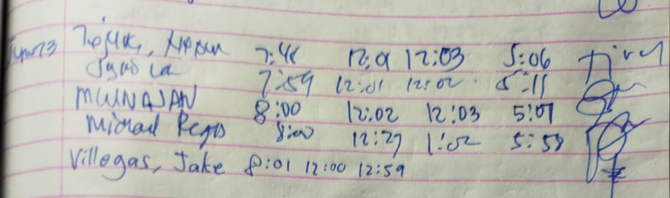 June 23 7:48 12:01 12:03 5:06
7:59 12:01 12:02 5:11
MUNAJAN 8:00 12:02 12:03 5:07
Michael Regis 8:00 12:27 1:02 5:58
Villegas, Jake 8:01 12:00 12:59